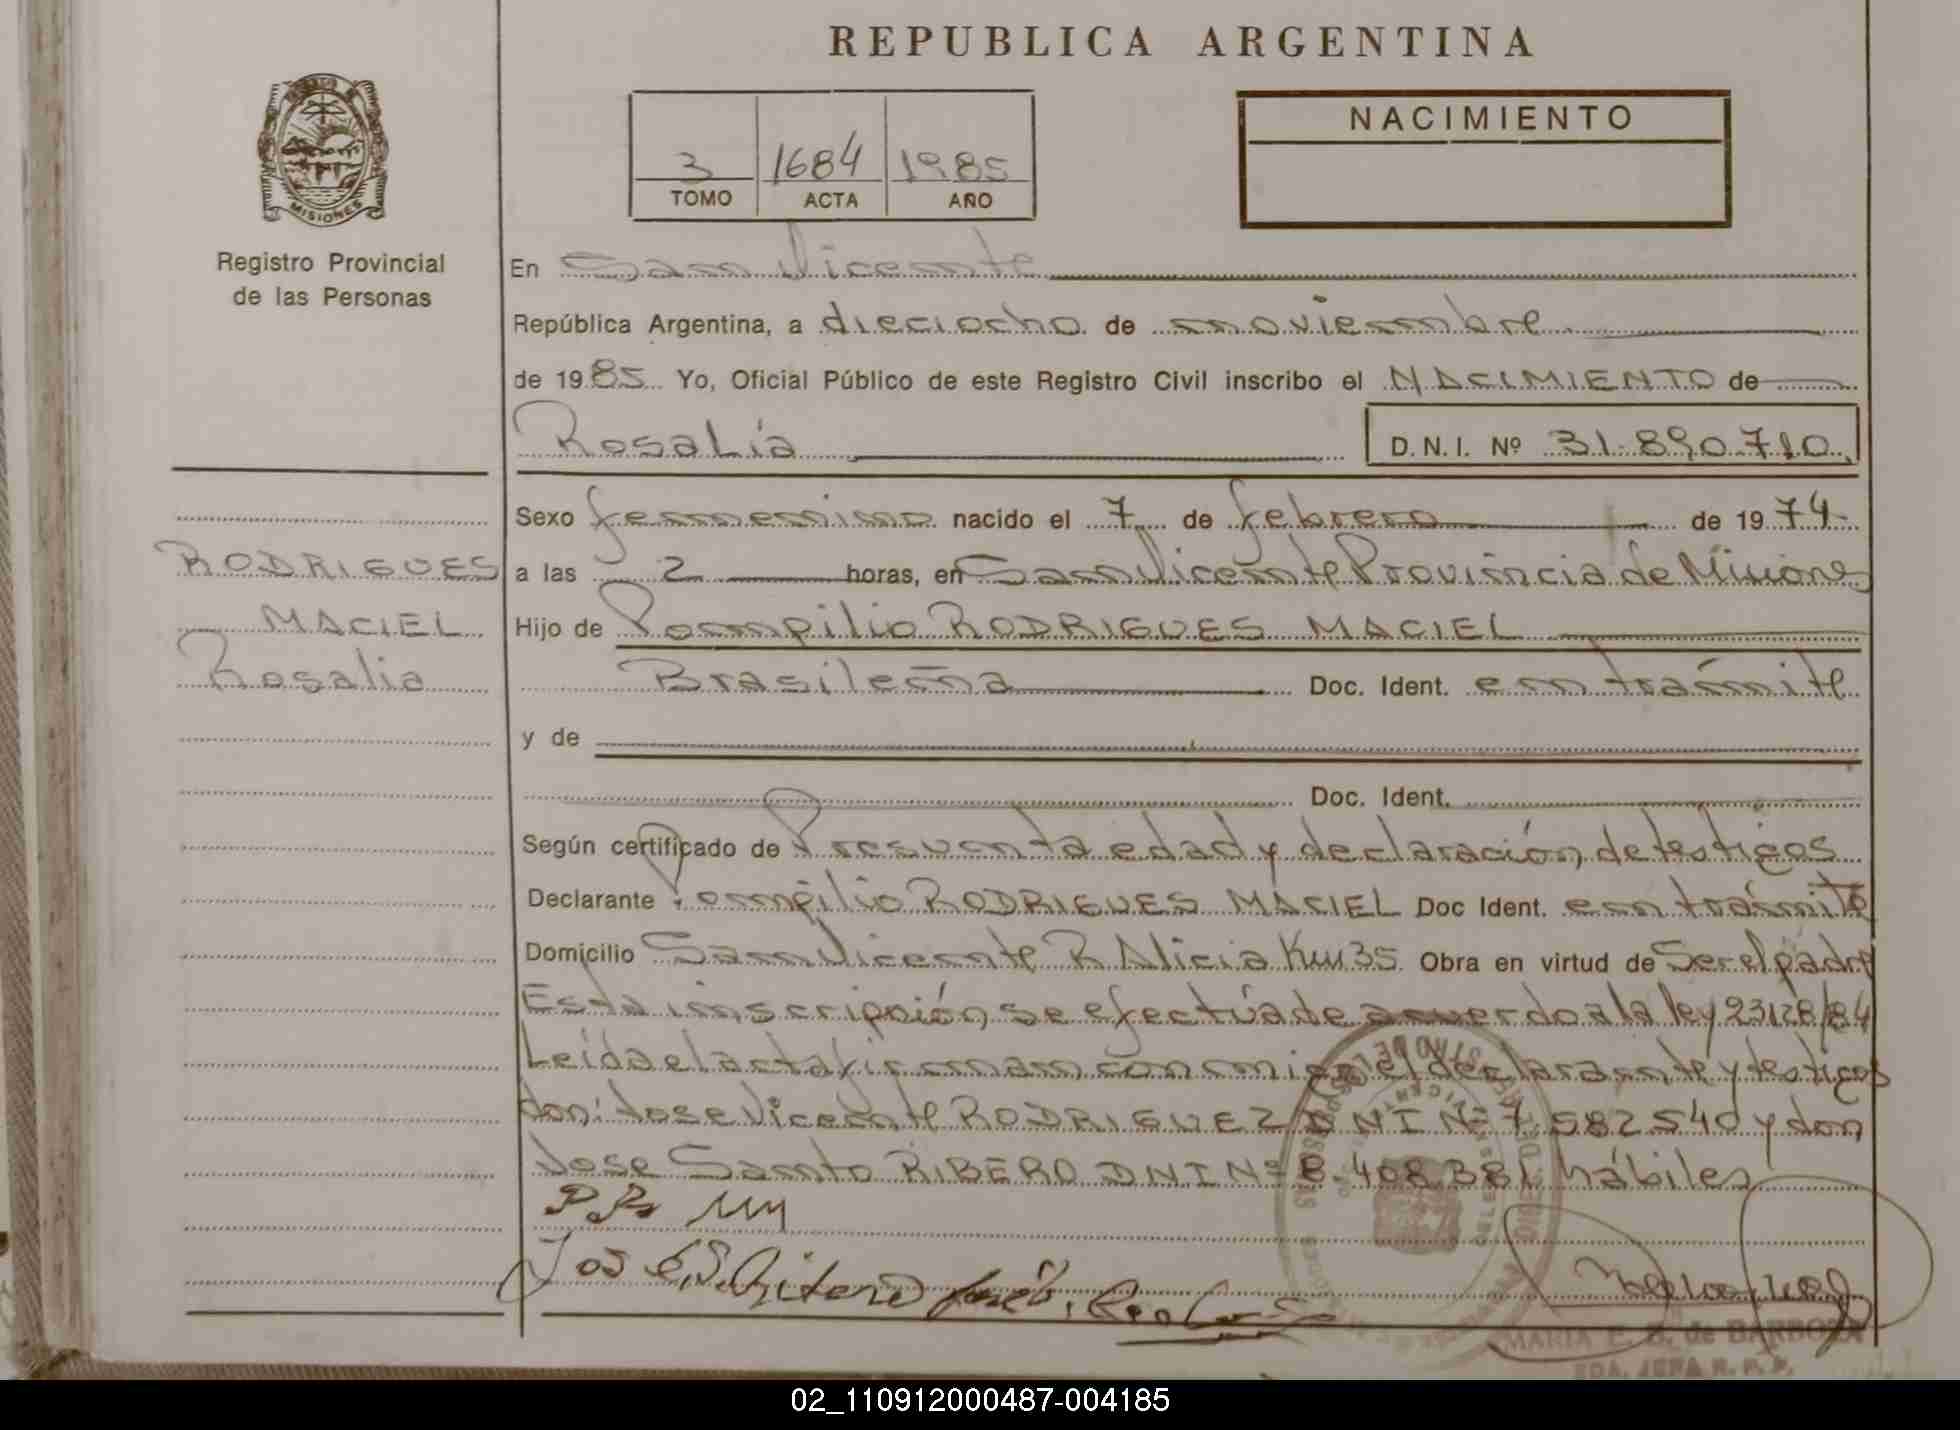 REPUBLICA ARGENTINA
NACIMIENTO
3 1684 1985
TOMO ACTA AÑO
MISIONES
Registro Provincial
de las Personas
En San Vicente
República Argentina, a dieciocho de noviembre
de 1985 Yo, Oficial Público de este Registro Civil inscribo el NACIMIENTO de
Rosalía D.N.I. Nº 31.890.710
Sexo femenino nacido el 7 de febrero de 1974
RODRIGUES
a las 2 horas, en San Vicente Provincia de Misiones
MACIEL
Hijo de Pompilio RODRIGUES MACIEL
Rosalia
Brasileña Doc. Ident. en trámite
y de
Doc. Ident.
Según certificado de Presunta edad y declaración de testigos
Declarante Pompilio RODRIGUES MACIEL Doc Ident. en trámite
Domicilio San Vicente R Alicia Km 35 Obra en virtud de Ser el padre
Esta inscripción se efectúa de acuerdo a la ley 23128/84
Leída el acta firman conmigo el declarante y testigos
don: Jose Vicente RODRIGUEZ DNI Nº 7.582.540 y don
Jose Santo RIBERO DNI Nº 8.408.381 hábiles
MARIA E. B. de BARBOZA
EDA. JEFA R. P. P.
02_110912000487-004185